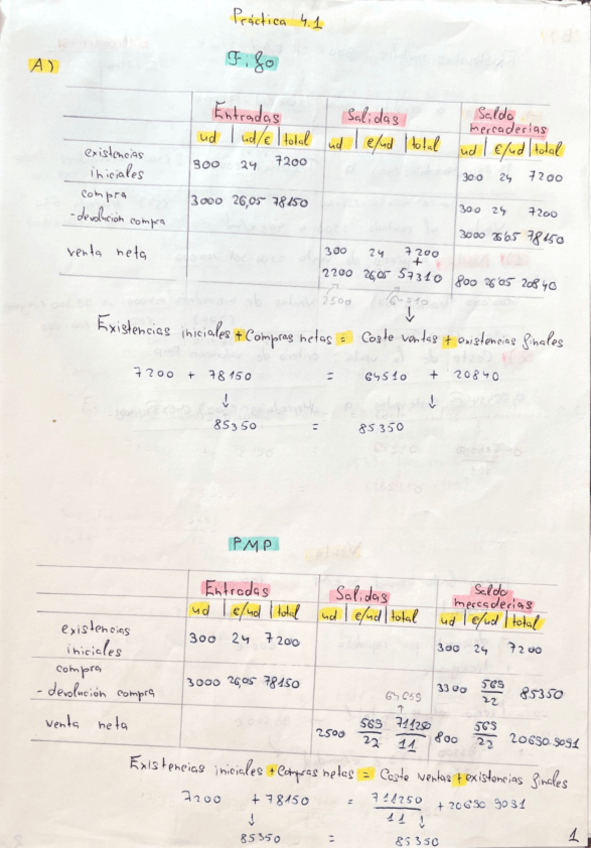 Práctica 4.1
A)
Fifo
Entradas Salidas Saldo mercaderias
ud | ud/€ | total ud | €/ud | total ud | €/ud | total
existencias iniciales 300 24 7200 300 24 7200
compra 3000 26,05 78150 300 24 7200
-devolución compra 3000 26,05 78150
venta neta 300 24 7200
+
2200 26,05 57310 800 26'05 20840
2500 64510
Existencias iniciales + Compras netas = Coste ventas + existencias finales
7200 + 78150 = 64510 + 20840
↓ ↓
85350 = 85350
PMP
Entradas Salidas Saldo mercaderias
ud | €/ud | total ud | €/ud | total ud | €/ud | total
existencias iniciales 300 24 7200 300 24 7200
compra
-devolución compra 3000 26,05 78150 3300 569/22 85350
64659
venta neta 2500 569/22 711250/11 800 569/22 20690.9091
Existencias iniciales + Compras netas = Coste ventas + existencias finales
7200 + 78150 = 711250/11 + 20690 9091
↓ ↓
85350 = 85350
1